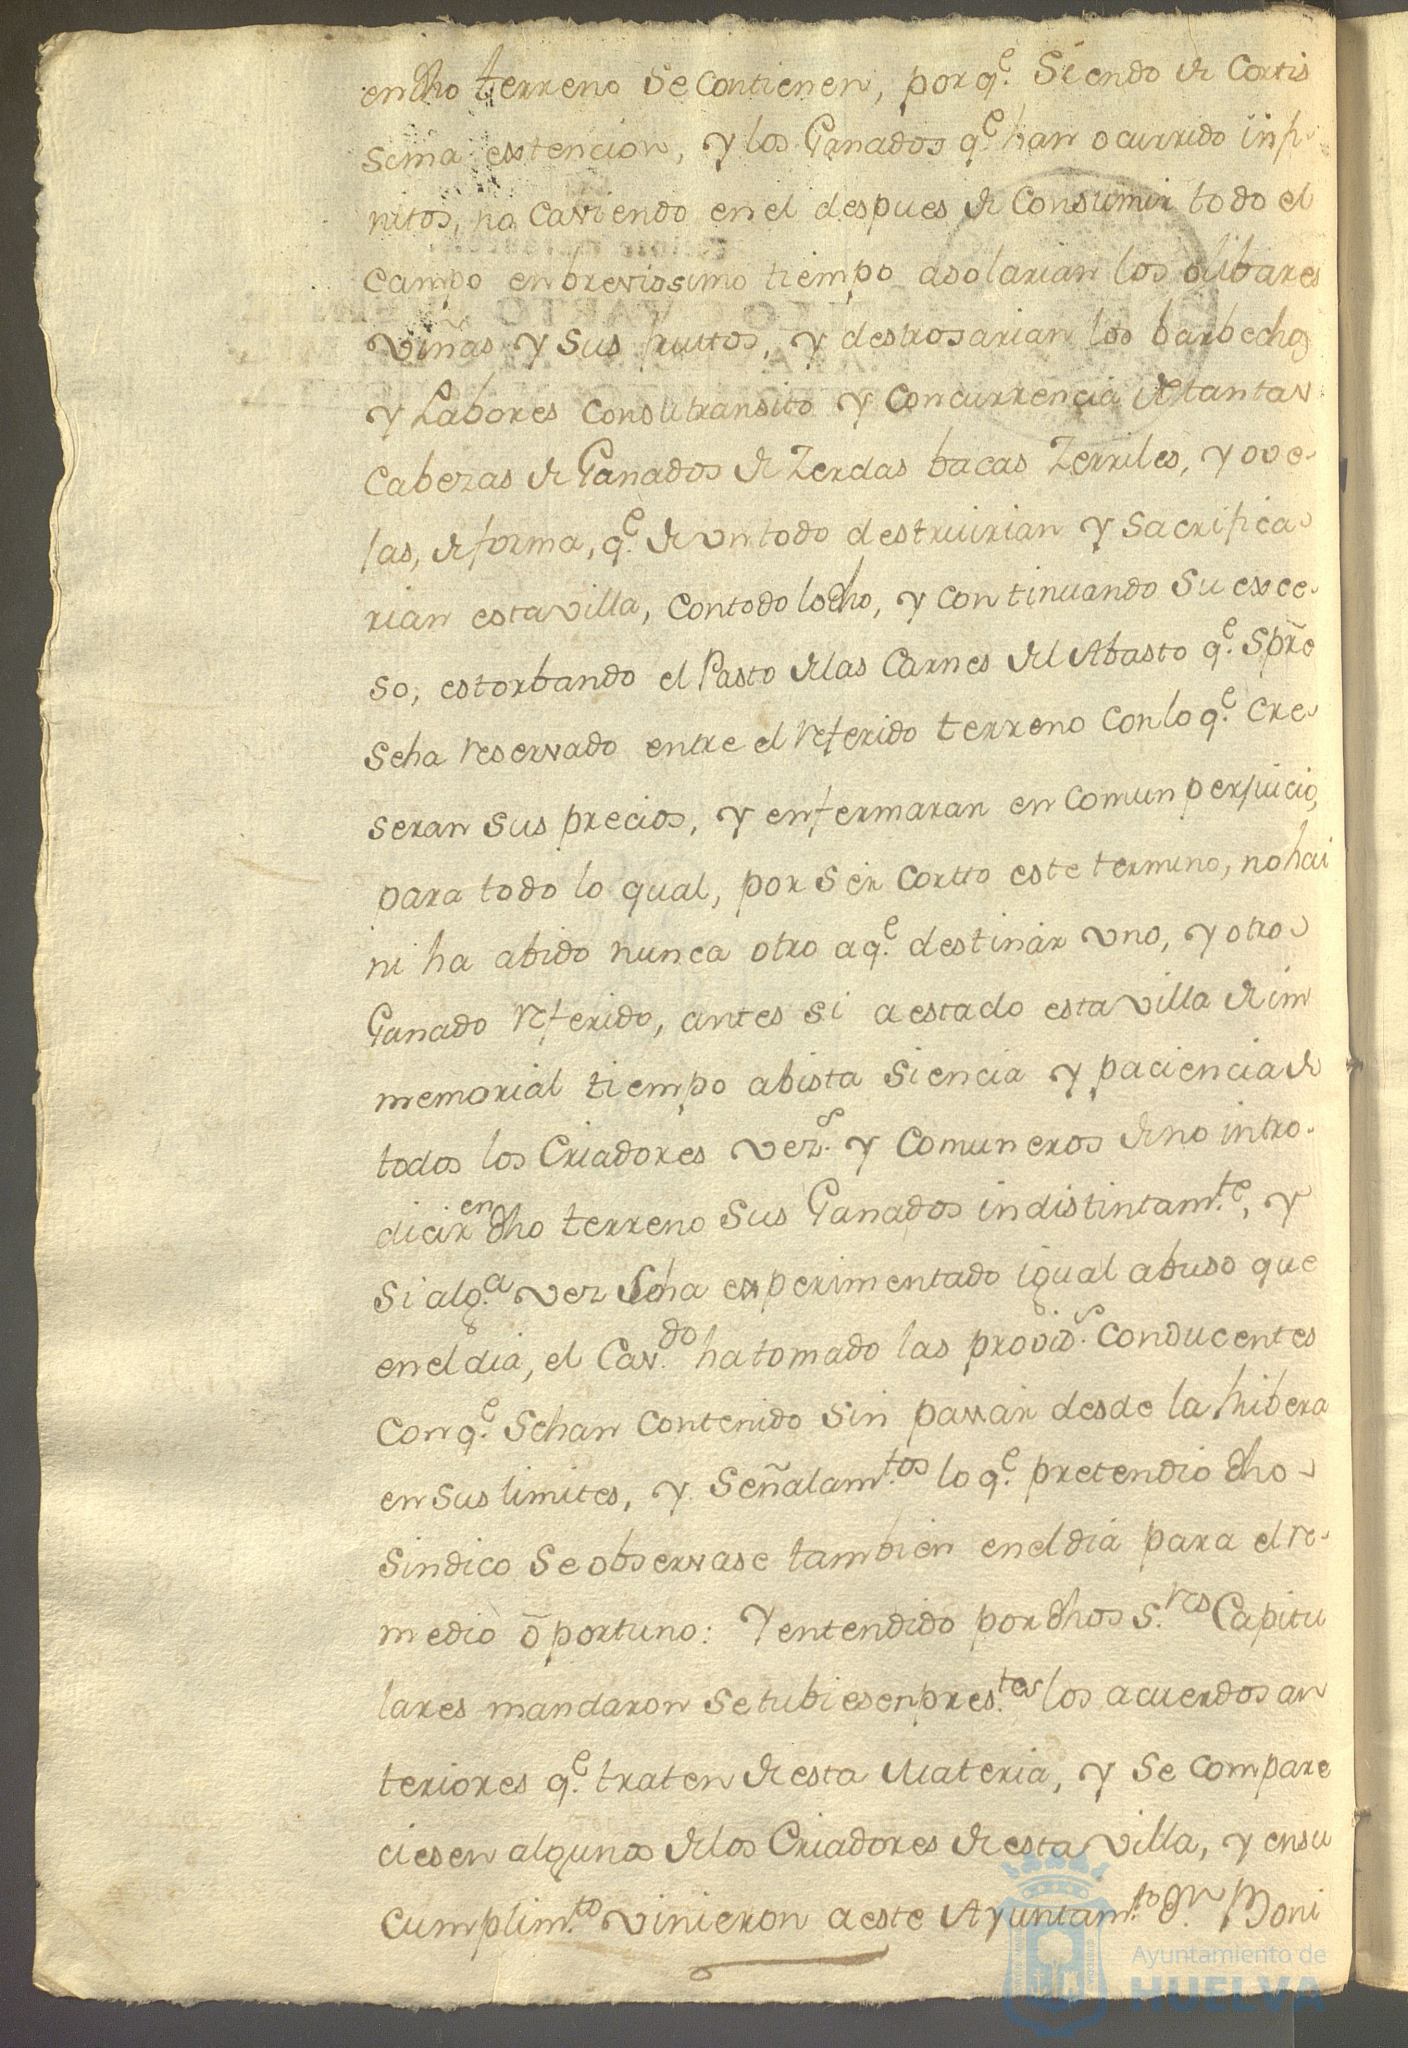 en dho terreno se contienen, porq.e Siendo de Cortis
sima extencion, y los Ganados q.e han ocurrido infi-
nitos, no caviendo en el despues de Consumir todo el
Campo en brevissimo tiempo asolarian los olibares
viñas y sus fruttos, y destrosarian los barbechos
y Labores con su transito y Concurrencia de tantas
Cabezas de Ganados de Zerdas bacas Zerriles, y ove-
jas, de forma, q.e de un todo destruirian y Sacrifica-
rian esta villa, con todo lo dho, y continuando su exce-
so, estorbando el Pasto de las Carnes del Abasto q.e Spre
se ha reservado entre el referido terreno con lo q.e Cre-
seran sus precios, y enfermaran en Comun perjuicio,
para todo lo qual, por Ser Cortto este termino, no hai
ni ha abido nunca otro a q.e destinar uno, y otro
Ganado referido, antes si a estado esta villa de im
memorial tiempo abista Siencia y paciencia de
todos los Criadores vez.s y Comuneros de no intro-
dicir en dho terreno Sus Ganados indistintam.te, y
Si alg.a vez Seha experimentado igual abuso que
en el dia, el Cav.do ha tomado las provid.s Conducentes
Con q.e Sehan Contenido Sin passar desde la hibera
en Sus limites, y Señalam.tos lo q.e pretendio dho
Sindico Se observase tambien en el dia para el re-
medio oportuno: Y entendido por dhos S.res Capitu
lares mandaron Se tubiesen pres.tes los acuerdos an
teriores q.e traten de esta Materia, y Se compare
ciesen algunos de los Criadores de esta villa, y en su
Cumplim.to vinieron a este Ayuntam.to D.n Boni
Ayuntamiento de
HUELVA